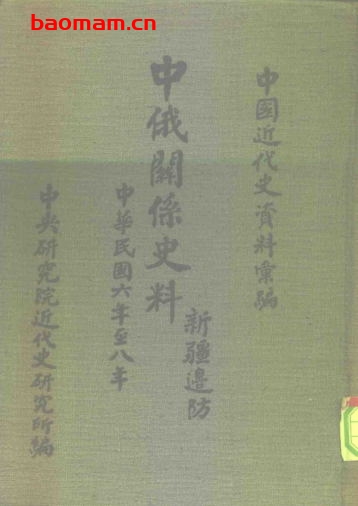 baomam.cn
中国近代史資料彙編
中俄關係史料
新疆邊防
中華民國六年至八年
中央研究院近代史研究所編